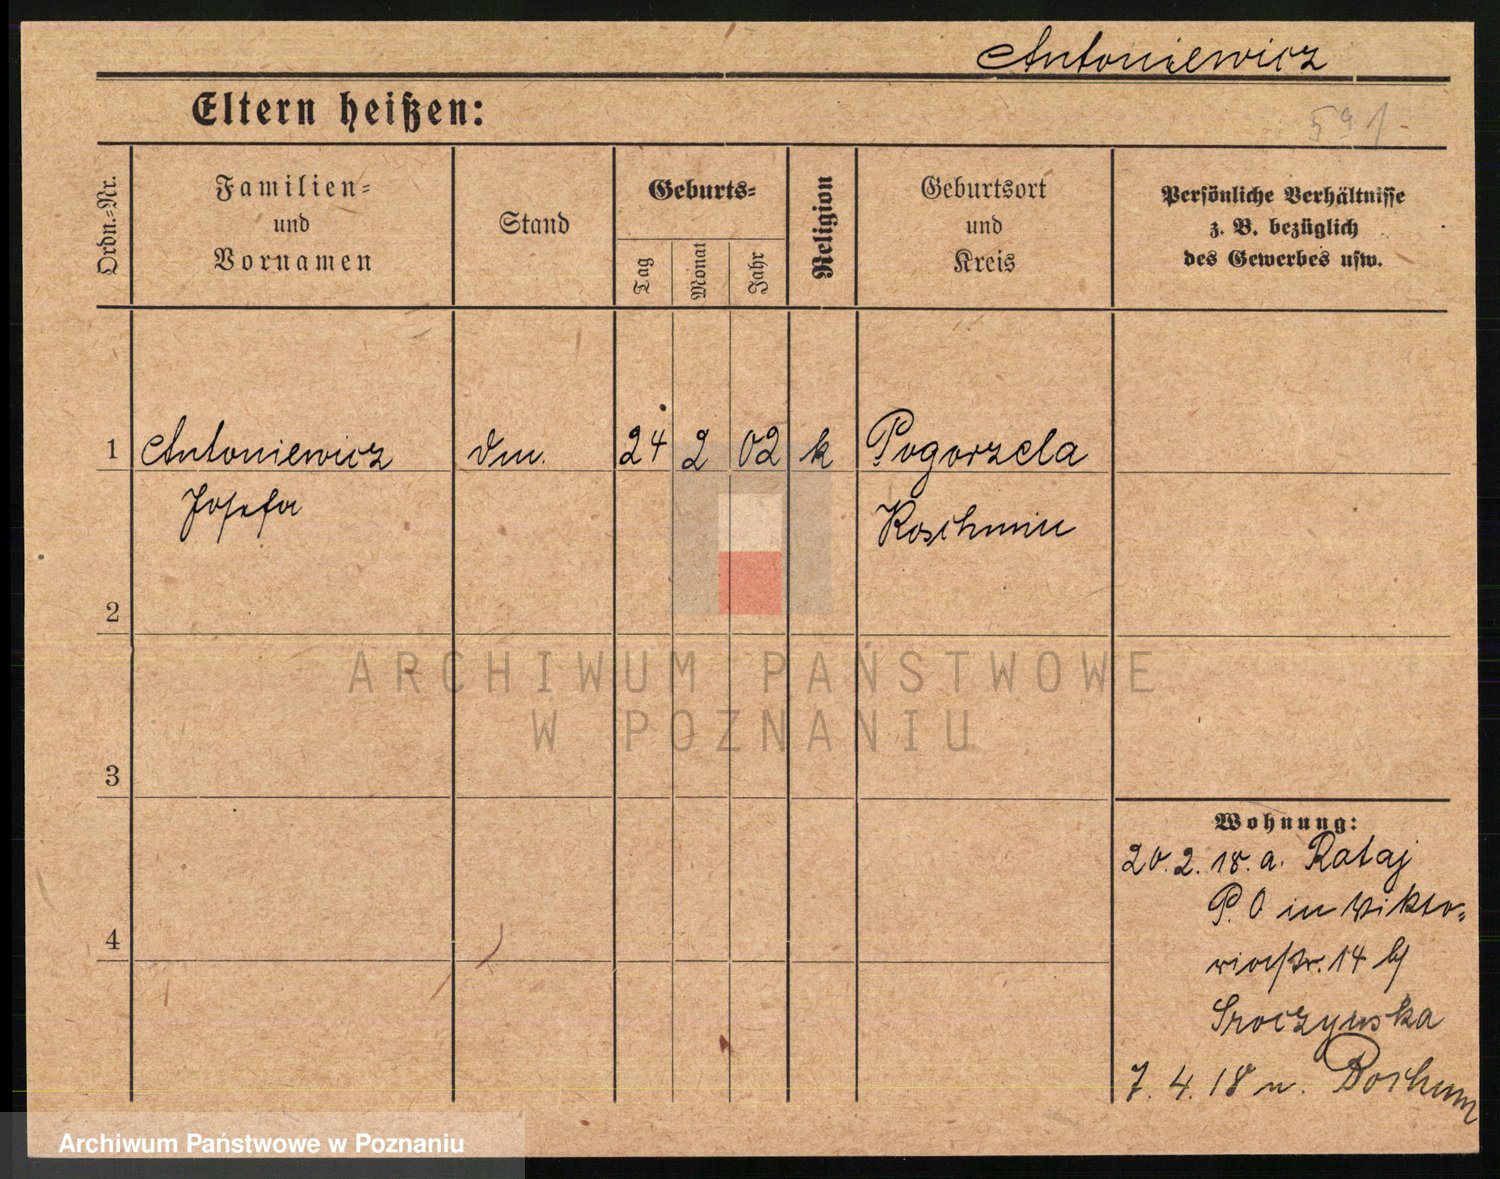 Antoniewicz
Eltern heißen:
591
Ordn.=Nr.
Familien=
und
Vornamen
Stand
Geburts=
Tag
Monat
Jahr
Religion
Geburtsort
und
Kreis
Persönliche Verhältnisse
z. B. bezüglich
des Gewerbes usw.
1 Antoniewicz dm. 24 2 02 k Pogorzela
Josefa Koschmin
2
ARCHIWUM PAŃSTWOWE
W POZNANIU
3
Wohnung:
20.2.18. a. Rataj
P.O in Wikto=
riastr. 14 bj
4
Sroczynska
7.4.18 n. Bochum
Archiwum Państwowe w Poznaniu